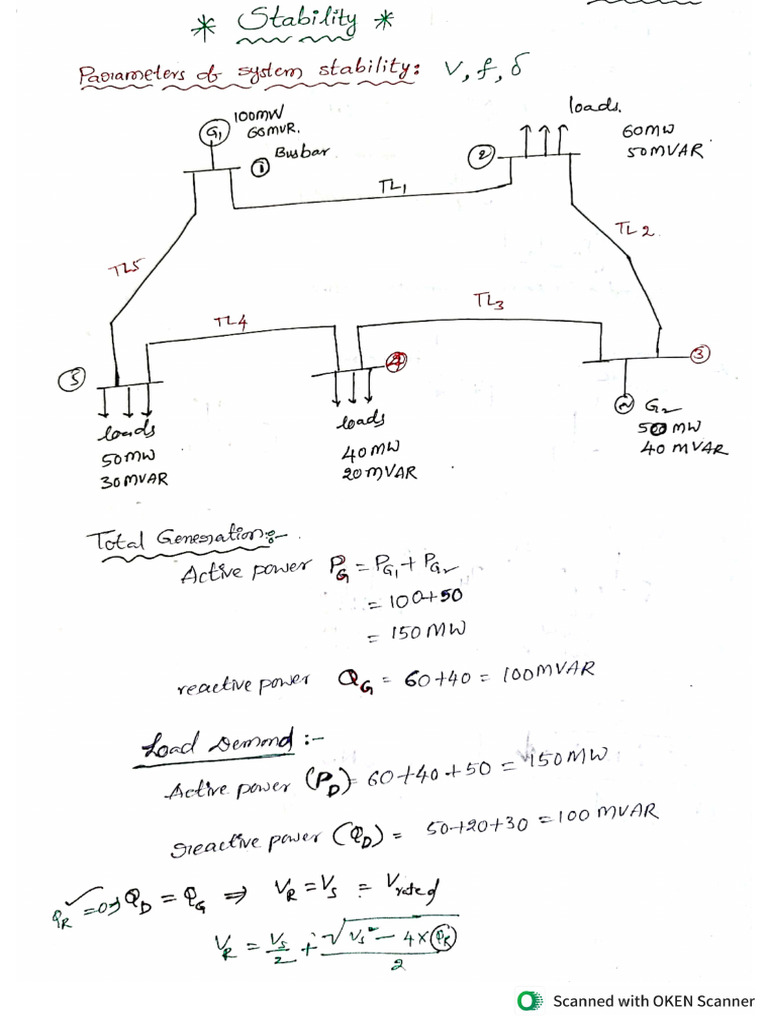 * Stability *
Parameters of system stability: V, f, δ
G1
100MW
60MVR.
① Busbar
②
loads.
60MW
50MVAR
TL1
TL2
TL5
TL4
TL3
⑤
④
③
loads
50MW
30MVAR
loads
40MW
20MVAR
G2
50 MW
40 MVAR
Total Generation:-
Active power PG = PG1 + PG2
= 100+50
= 150 MW
reactive power QG = 60+40 = 100MVAR
Load Demand :-
Active power (PD) = 60+40+50 = 150MW
reactive power (QD) = 50+20+30 = 100 MVAR
QR = 0 → QD = QG ⇒ VR = VS = Vrated
VR = VS/2 + √(VS² - 4X QR)/2
Scanned with OKEN Scanner